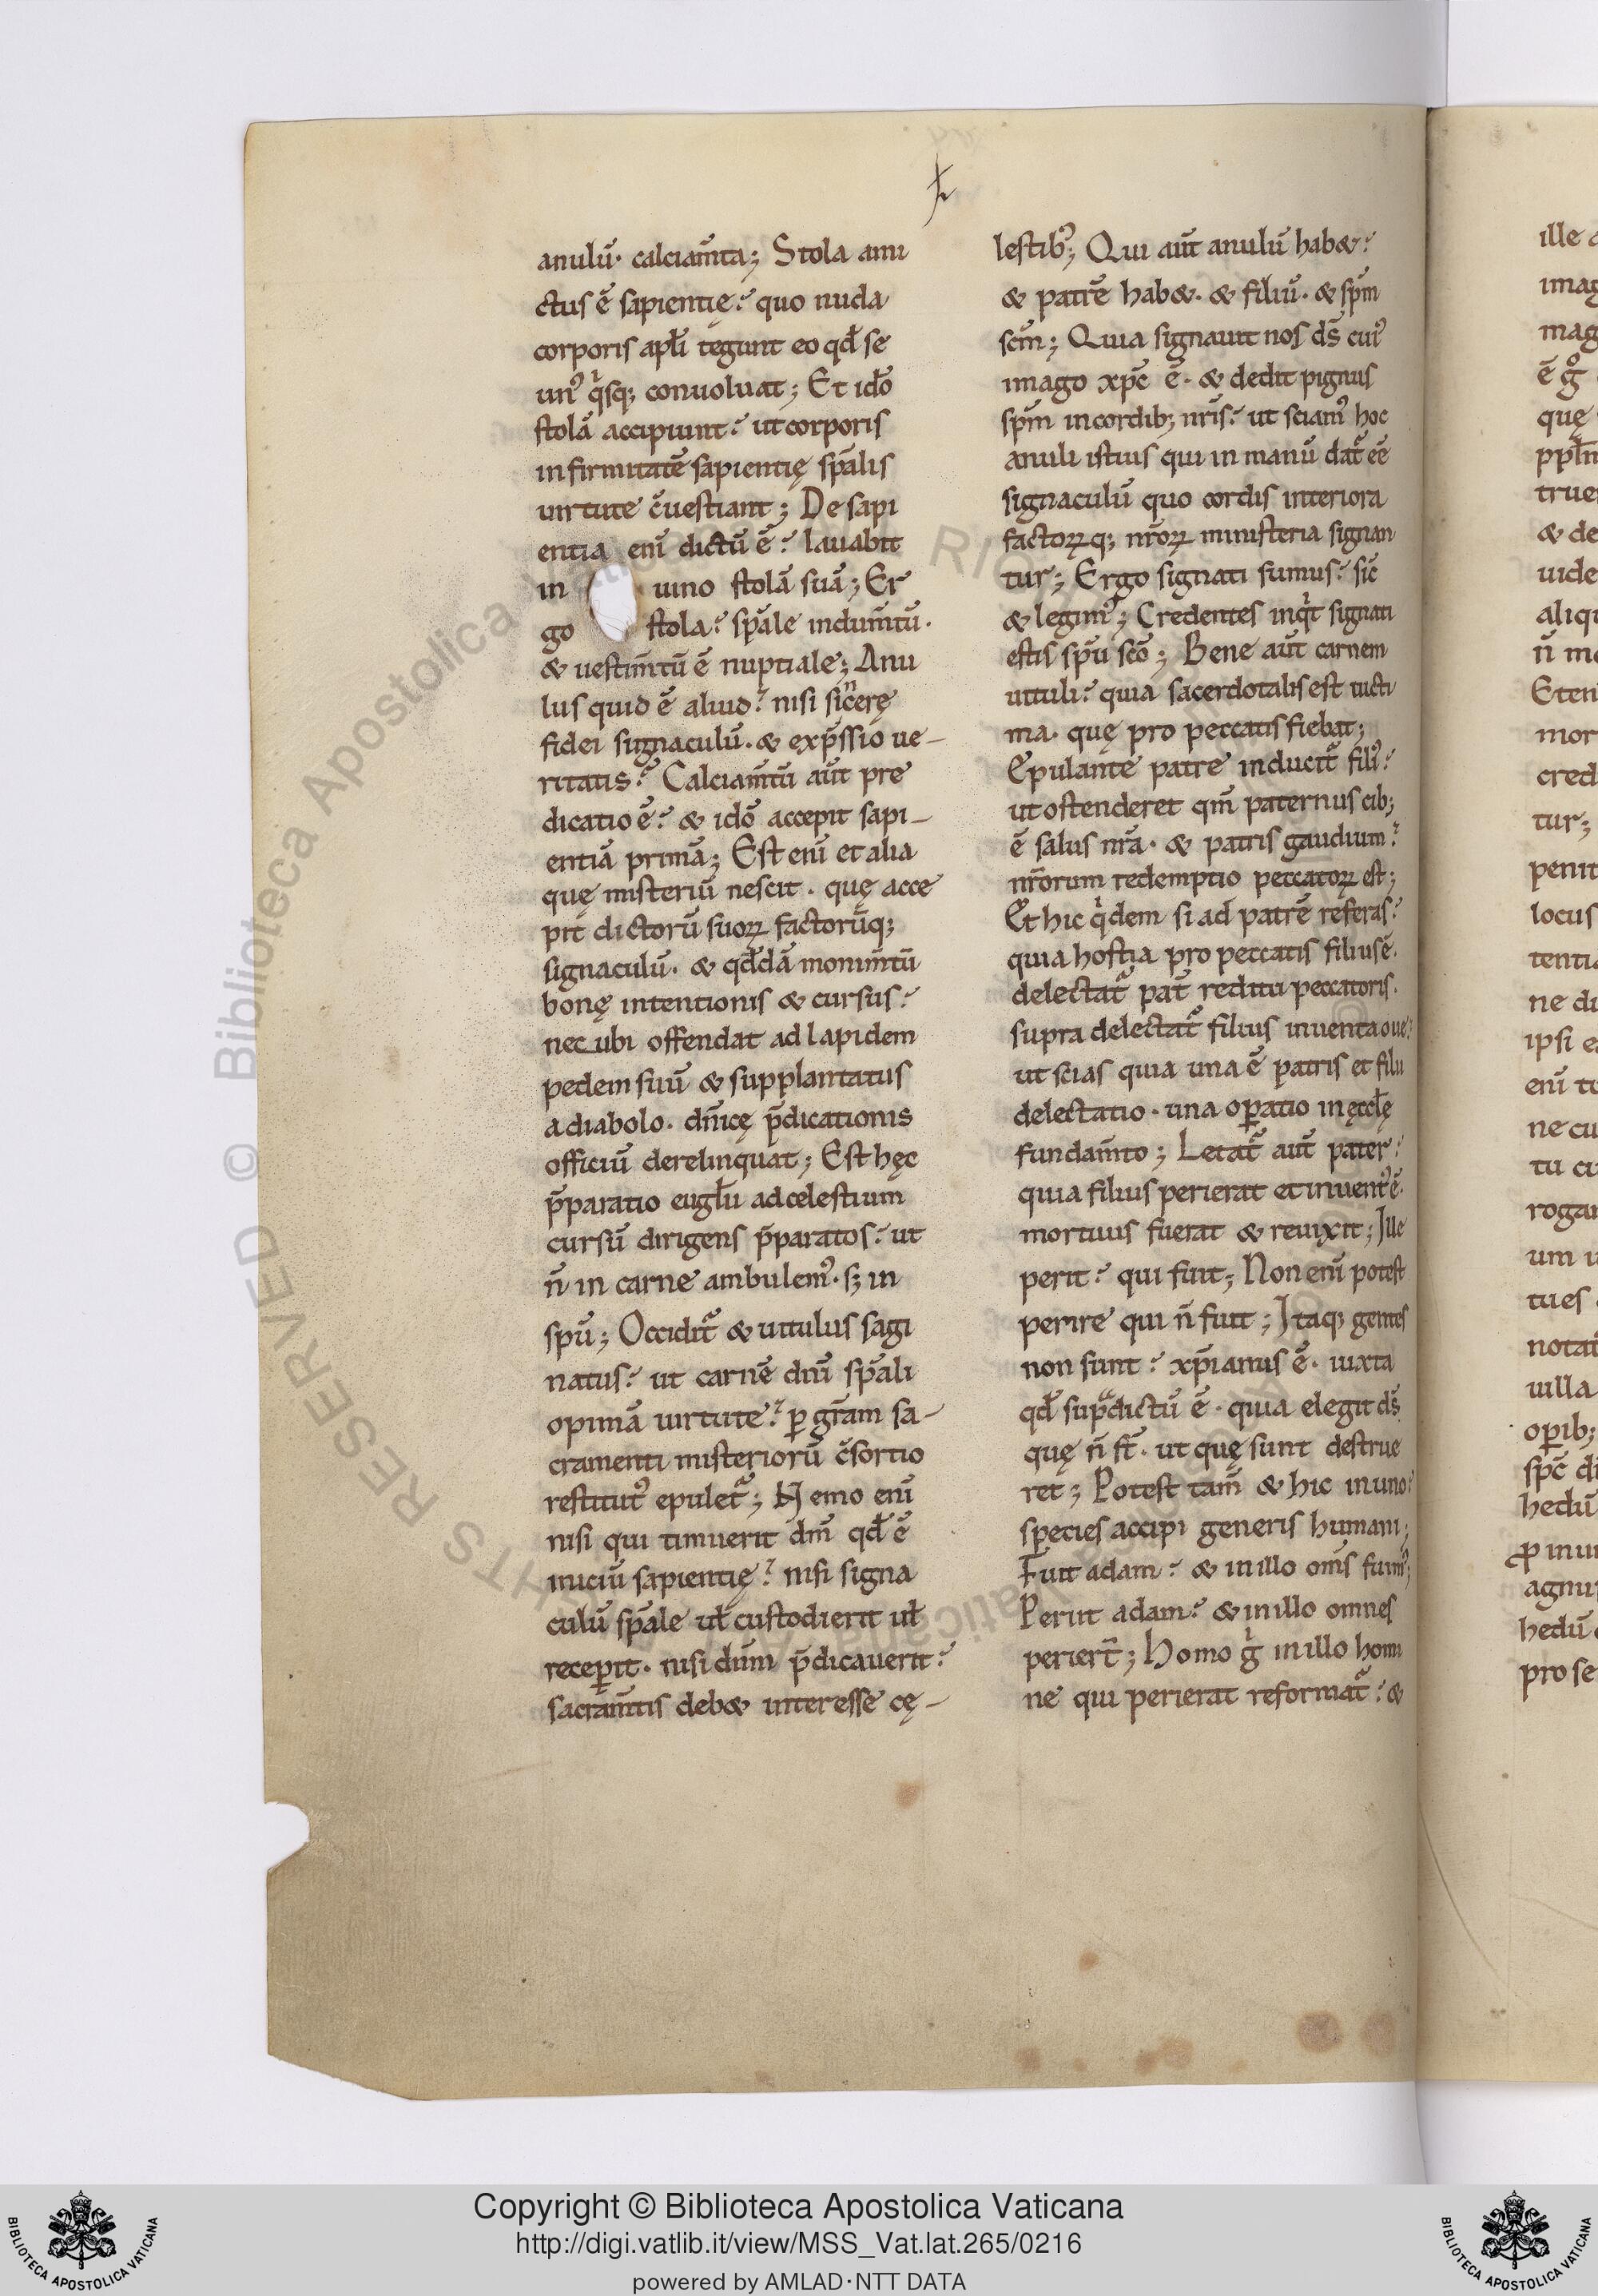 anulū· calciam̄ta; Stola ami
ctus ē sapientię? quo nuda
corporis apl̄i tegunt eo qđ se
unꝰ qͥsq; conuoluat; Et idō
stolā accipiunt? ut corporis
infirmitatē sapientię sp̄alis
uirtute c̄uestiant; De sapi
entia eni dictū ē? lauabit
in uino stolā suā; Er
go stola? sp̄ale indum̄tū·
& uestim̄tū ē nuptiale; Anu
lus quid ē aliud? nisi sincerę
fidei signaculū· & exp̄ssio ue-
ritatis? Calciam̄tū aūt pre
dicatio ē? & idō accepit sapi-
entiā primā; Est enī et alia
quę misteriū nescit· quę acce
pit dictorū suoꝝ factorūq;
signaculū· & qđdā monim̄tū
bonę intentionis & cursus?
nec ubi offendat ad lapidem
pedem suū & supplantatus
a diabolo· dn̄icę p̄dicationis
officiū derelinquat; Est hęc
p̄paratio eugl̄ii ad celestium
cursū dirigens p̄paratos? ut
n̄ in carne ambulemꝰ· s; in
spū; Occidit᷑ & uitulus sagi
natus? ut carnē dn̄i sp̄ali
opimā uirtute? ꝑ gr̄am sa-
cramenti misteriorū c̄sortio
restitutꝰ epulet᷑; Nemo enī
nisi qui timuerit dm̄ qđ ē
iniciū sapientię? nisi signa
culū sp̄ale ul̄ custodierit ul̄
receꝑit· nisi dn̄m p̄dicauerit?
sacram̄tis deb& interesse cę-
lestibꝰ; Qui aūt anulū hab&?
& patrē hab&· & filiū· & sp̄m
scm̄; Quia signauit nos ds̄ cuiꝰ
imago xp̄c ē· & dedit pignus
sp̄m in cordib; nr̄is? ut sciamꝰ hoc
anuli istius qui in manū dat᷑ eē
signaculū quo cordis interiora
factoꝝq; nr̄oꝝ ministeria signan
tur; Ergo signati sumus? sic̄
& legimꝰ; Credentes inqͥt signati
estis spū scō; Bene aūt carnem
uituli? quia sacerdotalis est uicti
ma· quę pro peccatis fiebat;
Epulante patre inducit᷑ filiꝰ?
ut ostenderet qm̄ paternus cib;
ē salus nr̄a· & patris gaudium?
nr̄orum redemptio peccatoꝝ est;
Et hic qͥdem si ad patrē referas?
quia hostia pro peccatis filius ē·
delectat᷑ pat̄ reditu peccatoris·
supra delectat᷑ filius inuenta oue?
ut scias quia una ē patris et filii
delectatio· una oꝑatio in ęccl̄ę
fundam̄to; Letat᷑ aūt pater?
quia filius perierat et inuentꝰ ē·
mortuus fuerat & reuixit; Ille
perit? qui fuit; Non enī potest
perire qui n̄ fuit; Itaq; gentes
non sunt? xp̄ianus ē· iuxta
qđ supᷓdictū ē· quia elegit ds̄
quę n̄ st̄· ut quę sunt destrue
ret; Potest tam̄ & hic in uno?
species accipi generis humani;
Fuit adam? & in illo om̄s fuimꝰ;
Periit adam? & in illo omnes
perier̄t; Homo gͥ in illo homi
ne qui perierat reformat᷑? &